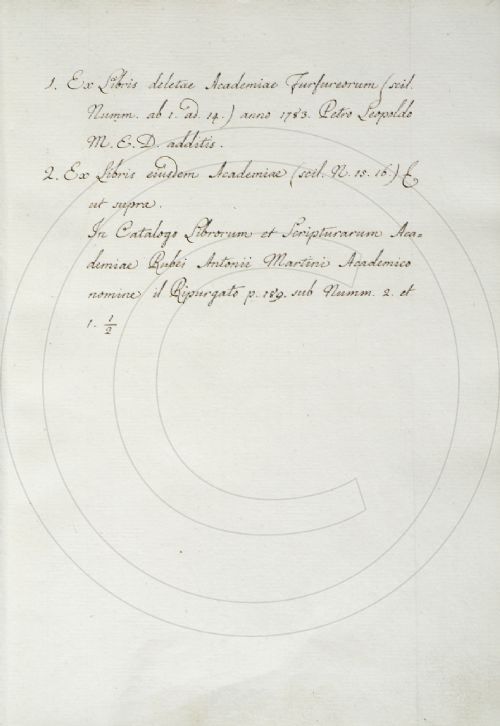 1. Ex Libris deletae Academiae Furfureorum (scil.
Numm. ab 1. ad. 14.) anno 1783. Petro Leopoldo
M. E. D. additis.
2. Ex Libris eiusdem Academiae (scil. N. 15. 16.)
ut supra.
In Catalogo Librorum et Scripturarum Aca=
demiae Rubei Antonii Martini Academico
nomine il Ripurgato p. 189. sub Numm. 2. et
1. 1/2